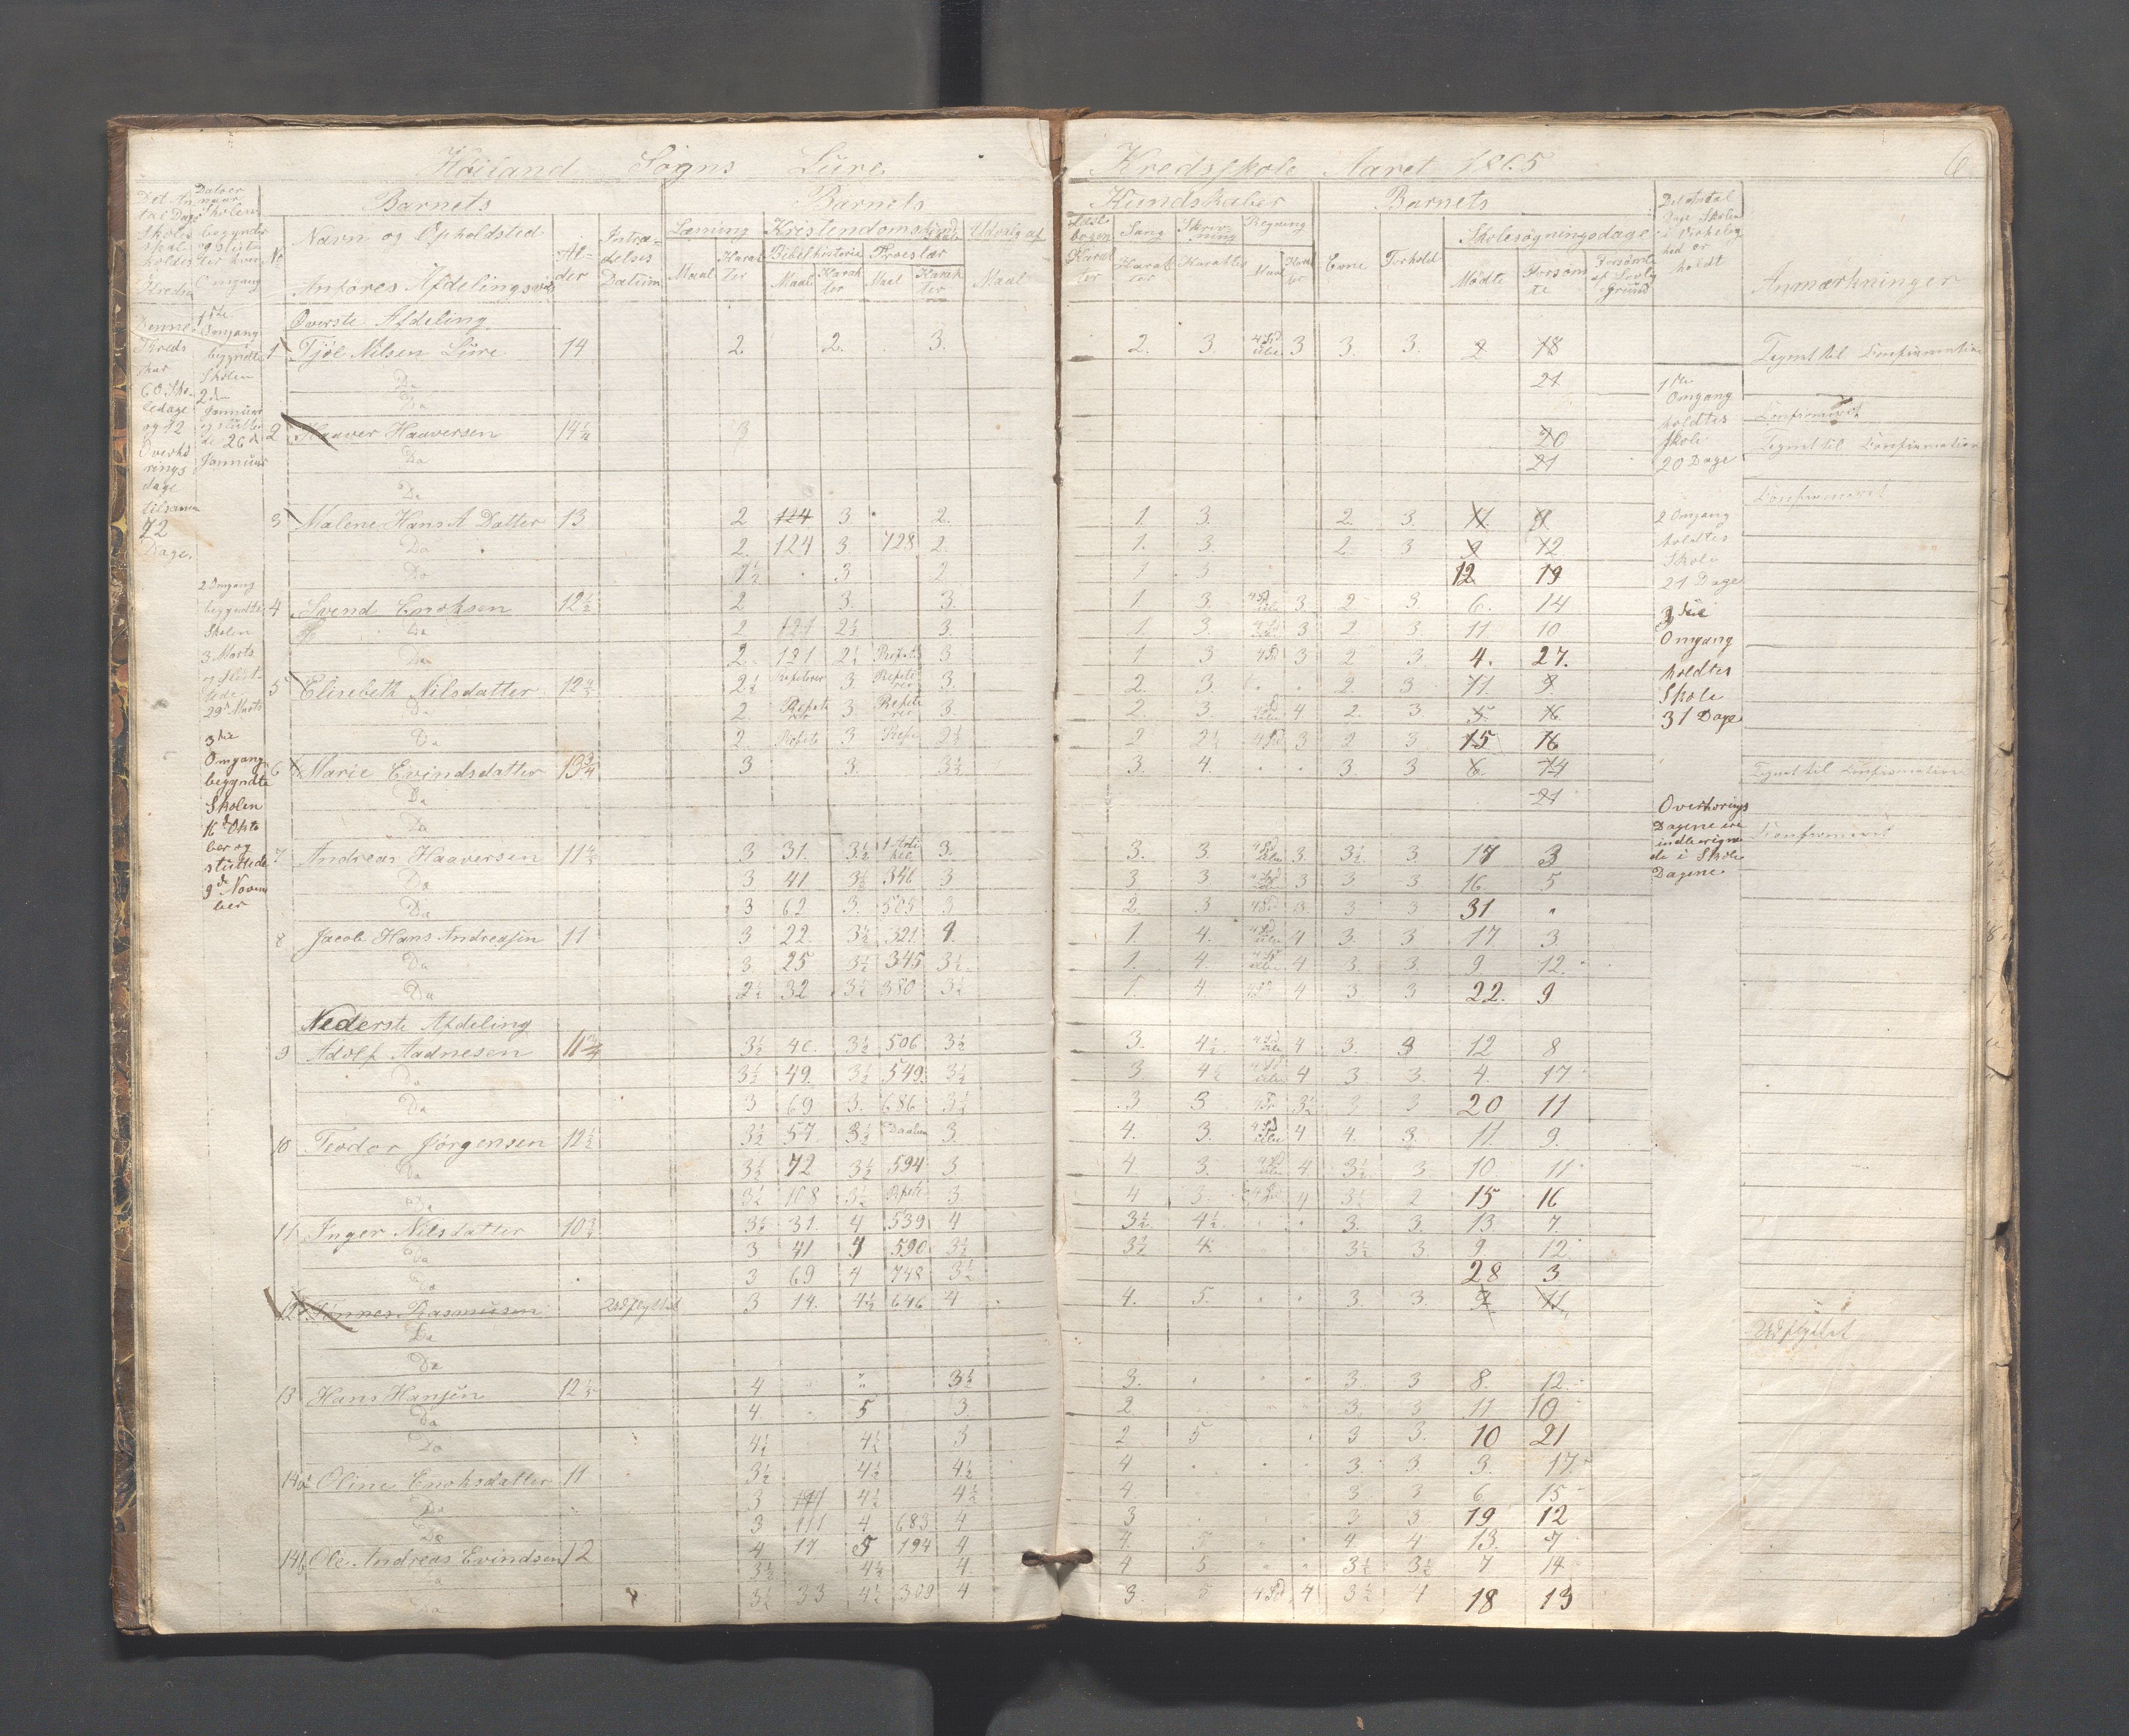 Høiland Sogns Lure Kredsskole Aaret 1865 6
Det Antal Dage Skolen skal holdes i Kredsen
Datoer naar Skolen begynder og slutter hver Omgang
No
Barnets
Navn og Opholdsted
Anføres Afdelingsvis
Alder
Intrædelses Datum
Barnets Kundskaber
Læsning Maal Karakter
Kristendomskundskab
Bibelhistorie Maal Karakter
Troeslær Maal Karakter
Udvalg af Læsebogen Maal Karakter
Sang Karakter
Skrivning Karakter
Regning Maal Karakter
Barnets
Evne Forhold
Skolesøgningsdage
Mødte Forsømte Forsømte af Lovlig Grund
Det Antal Dage Skolen i Virkelighed er holdt
Anmærkninger
Denne Kreds har 60 Skoledage og 12 Overhøringsdage tilsamen 72 Dage.
1ste Omgang begyndte Skolen 2den Januar og sluttede 26de Januar
2 Omgang begyndte Skolen 3 Marts og sluttede 29de Marts
3die Omgang begyndte Skolen 16de Oktober og sluttede 9de November
Øverste Afdeling
1 Tjøl Nilsen Lure 14 2 2. 3. 2. 3 3 3. 3. 2 18 Tegnet til Confirmation
Do 21
Do Confirmeret
2 Haaver Haaversen 14¼ 3 20 Tegnet til Confirmation
Do 21
Do Confirmeret
3 Malene Hans A Datter 13 2 124 3. 2. 1. 3. 2. 3. 11 9
Do 2. 124 3. 728 2. 1. 3. 2. 3 9 12
Do 1½ 3 2 1 3 12 19
4 Svend Enoksen 12½ 2 3. 3. 1 3. 3. 2 3. 6. 14
Do 2 121 2½ 3. 1. 3. 3 2 3 11 10
Do 2. 121 2½ Repete 3 1 3 3 2 3. 4. 27.
5 Elisebeth Nilsdatter 2½ Repeterer 3. Repeterer 3. 2. 3. 2. 3 11. 9
Do 2 Repeterer 3 Repeterer 3. 2. 3. 4 2. 3. 5. 16
Do 2. Repete 3 Repe 2½ 2 2½ 3 2 3 15 16
6 Marie Evindsdatter 13¾ 3 3. 3½ 3. 4. 3. 3 6. 14 Tegnet til Confirmation
Do 21
Do Confirmeret
7 Andreas Haaversen 3 31. 3½ 1 Artikel 3. 3. 3. 3. 3½ 3. 17 3
Do 3 41 3½ 346 3 3 3 3 3 3 16 5
Do 3 62 3. 505 3 2. 3 3 3 3 31
8 Jacob Hans Andreasen 11 3 22. 3½ 321 4. 1. 4. 4 3. 3 17 3
Do 3. 25 3½ 345 3½ 1. 4. 4 3. 3. 9. 12.
Do 2½ 32 3½ 380 3½ 1. 4 4 3 3 22. 9
Nederste Afdeling
9 Adolf Aadnesen 11¾ 3½ 46. 3½ 506 3½ 3. 4½. 4 3. 3 12 8
Do 3½ 49. 3½ 549. 3½ 3 4½ 4 3 3. 4. 17
Do 3 69 3. 686 3½ 3 3 3½ 3 3 20 11
10 Teodor Jørgensen 12½ 3½ 57 3½ Daaben 3. 4. 3. 4 4. 3. 11. 9.
Do 3½ 72 3½ 594 3 4 3. 4 3½ 3 10 11
Do 3½ 108 3½ Repete 3. 4 3. 4 3½ 2 15 16
11 Inger Nilsdatter 3½ 31. 4 539 4 3½ 4½. 3. 3. 13. 7
Do 3 41 4 590 3½ 3½ 4. 3½ 3. 9. 12.
Do 3 69 4 748 3½ 28 3
12 Tønnes Rasmusen Udflyttet 3 14. 4½ 646 4 4. 5. 3. 3. 9 11 Udflyttet
Do
Do
13 Hans Hansen 4 3½ 3. 3. 3 8. 12.
Do 4. 5 3. 2 3. 3 11 10
Do 4½ 4½ 3 2 5 3 3. 10 21
14a Oline Enoksdatter 11 3½ 4½ 4½ 4 3. 3. 3. 17.
Do 3 4½ 4½ 4. 3 3 6. 15
Do 3 111 4 683 4 3 3 3 19 12
14b Ole Andreas Evindsen 12 4 17 5 194 4 4. 5 4 4 13. 7
Do 3½ 4½ 4. 4 5 3½ 3½ 7 14
Do 3½ 33 4½ 309 4 3. 5 4 3½ 4 18 13
1ste Omgang holdtes Skole 20 Dage
2 Omgang holdtes Skole 21 Dage
3die Omgang holdtes Skole 31 Dage
Overhørings Dagene ere indberegnede i Skole Dagene